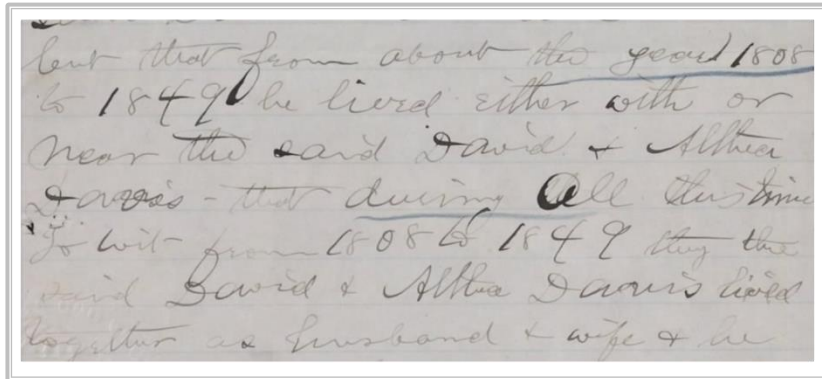 but that from about the year 1808
to 1849 he lived either with or
near the said David & Althea
Davis - that during all this time
To wit from 1808 to 1849 they the
said David & Althea Davis lived
together as husband & wife & he